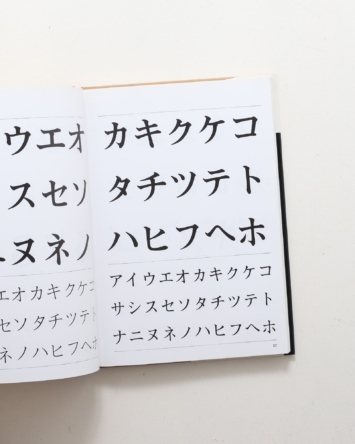 ウエオ
スセソ
ニヌネノ
エオカキクケコ
セソタチツテト
ネノハヒフヘホ
カキクケコ
タチツテト
ハヒフヘホ
アイウエオカキクケコ
サシスセソタチツテト
ナニヌネノハヒフヘホ